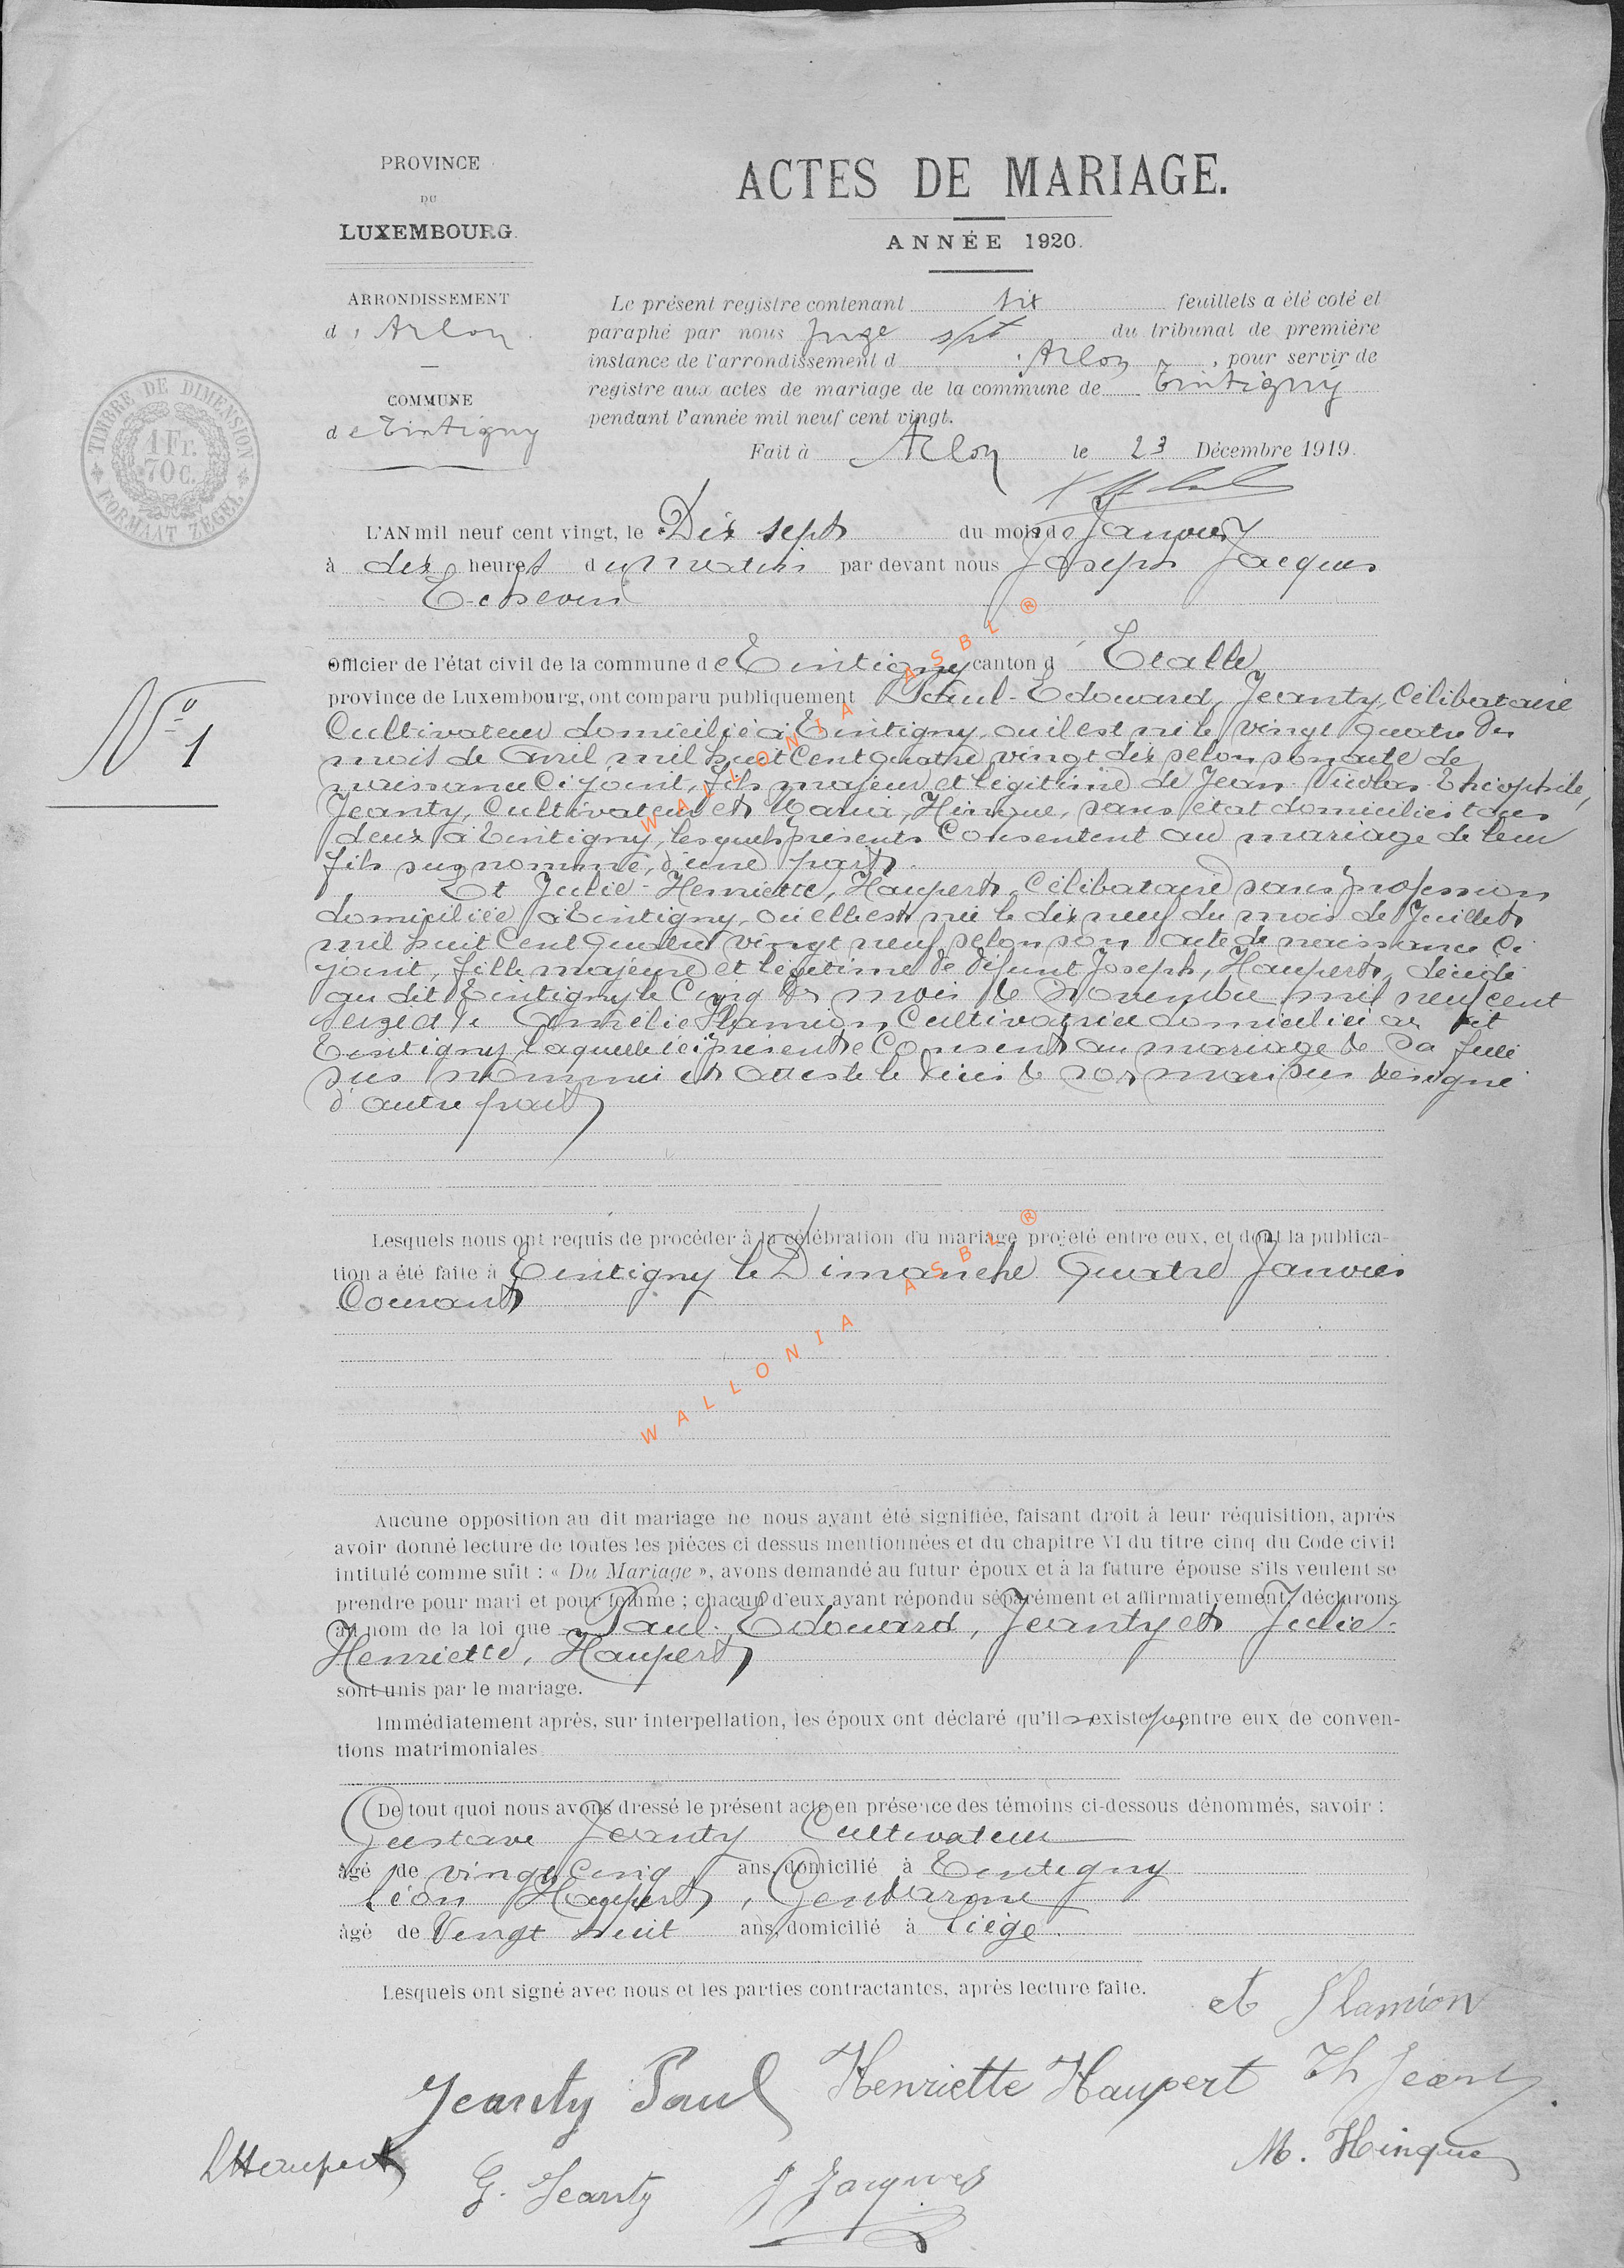 PROVINCE
DU
LUXEMBOURG.
ACTES DE MARIAGE.
ANNÉE 1920.
ARRONDISSEMENT
d' Arlon
COMMUNE
de Tintigny
TIMBRE DE DIMENSION
1 Fr.
70 C.
FORMAAT ZEGEL
Le présent registre contenant six feuillets a été coté et
paraphé par nous Juge spt du tribunal de première
instance de l'arrondissement d'Arlon, pour servir de
registre aux actes de mariage de la commune de Tintigny
pendant l'année mil neuf cent vingt.
Fait à Arlon le 23 Décembre 1919.
L'AN mil neuf cent vingt, le Dix sept du mois de Janvier
à dix heures du matin par devant nous Joseph Jacques
Echevin
Officier de l'état civil de la commune de Tintigny canton d' Etalle
N° 1
province de Luxembourg, ont comparu publiquement Paul-Edouard, Jeanty, Célibataire
Cultivateur domicilié à Tintigny, où il est né le vingt quatre du
mois de Avril mil huit Cent quatre vingt dix selon son acte de
naissance Ci joint, fils majeur et légitime de Jean Nicolas Théophile,
Jeanty, Cultivateur et Maria, Hinque, sans état domiciliés tous
deux à Tintigny, lesquels présents Consentent au mariage de leur
fils sus nommé, d'une part.
Et Julie-Henriette, Haupert, Célibataire sans profession
domiciliée à Tintigny, où elle est née le dix neuf du mois de Juillet
mil huit Cent quatre vingt neuf selon son acte de naissance Ci
joint, fille majeure et légitime de défunt Joseph, Haupert, décédé
au dit Tintigny le Cinq du mois de Novembre mil neuf cent
seize et de Amélie Flamion Cultivatrice domiciliée au dit
Tintigny, laquelle ici présente Consent au mariage de sa fille
sus nommée et atteste le décès de son mari sus désigné
d'autre part
Lesquels nous ont requis de procéder à la célébration du mariage projeté entre eux, et dont la publica-
tion a été faite à Tintigny le Dimanche Quatre Janvier
Courant
Aucune opposition au dit mariage ne nous ayant été signifiée, faisant droit à leur réquisition, après
avoir donné lecture de toutes les pièces ci dessus mentionnées et du chapitre VI du titre cinq du Code civil
intitulé comme suit : « Du Mariage », avons demandé au futur époux et à la future épouse s'ils veulent se
prendre pour mari et pour femme ; chacun d'eux ayant répondu séparément et affirmativement, déclarons
au nom de la loi que Paul-Edouard, Jeanty et Julie-
Henriette, Haupert
sont unis par le mariage.
Immédiatement après, sur interpellation, les époux ont déclaré qu'il n'existe pas entre eux de conven-
tions matrimoniales
De tout quoi nous avons dressé le présent acte en présence des témoins ci-dessous dénommés, savoir :
Gustave Jeanty Cultivateur
âgé de vingt Cinq ans, domicilié à Tintigny
Léon Haupert, Gendarme
âgé de Vingt huit ans, domicilié à Liège.
Lesquels ont signé avec nous et les parties contractantes, après lecture faite.
et Flamion
Jeanty Paul Henriette Haupert Th Jeanty
L Haupert G. Jeanty J Jacques M. Hinque
WALLONIA ASBL ®
WALLONIA ASBL ®